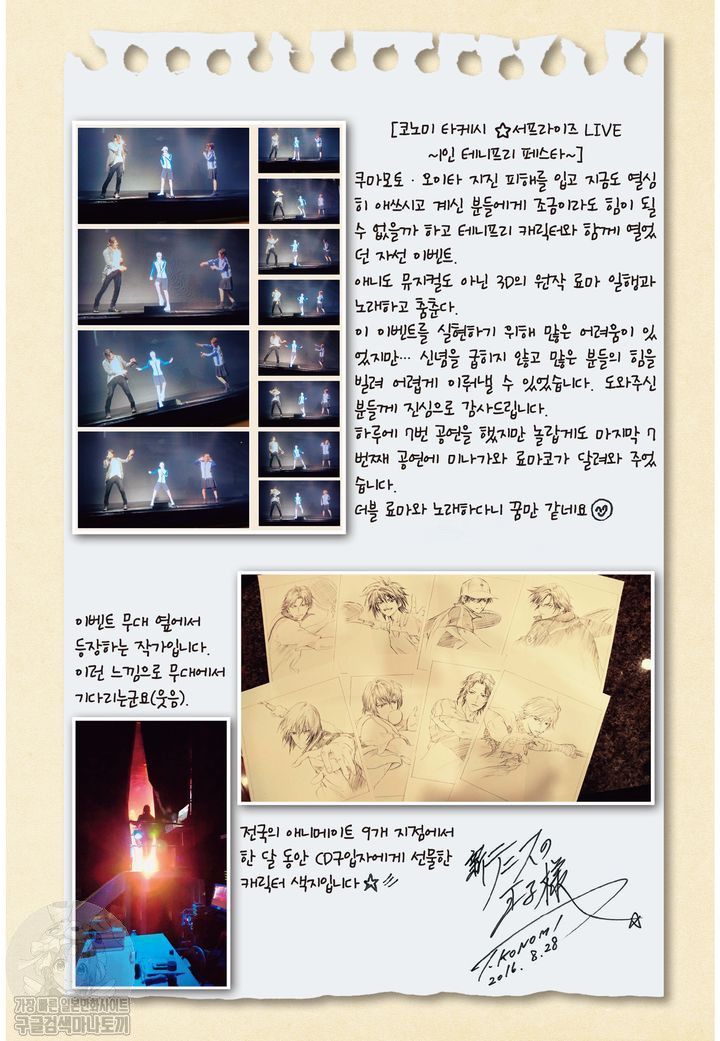 [코노미 타케시 ☆서프라이즈 LIVE
~1인 테니프리 페스타~]
쿠마모토·오이타 지진 피해를 입고 지금도 열심
히 애쓰시고 계신 분들에게 조금이라도 힘이 될
수 없을까 하고 테니프리 캐릭터와 함께 열었
던 자선 이벤트.
애니도 뮤지컬도 아닌 3D의 원작 료마 일행과
노래하고 춤춘다.
이 이벤트를 실현하기 위해 많은 어려움이 있
었지만… 신념을 굽히지 않고 많은 분들의 힘을
빌려 어렵게 이뤄낼 수 있었습니다. 도와주신
분들께 진심으로 감사드립니다.
하루에 7번 공연을 했지만 놀랍게도 마지막 7
번째 공연에 미나가와 료마코가 달려와 주었
습니다.
더블 료마와 노래하다니 꿈만 같네요
이벤트 무대 옆에서
등장하는 작가입니다.
이런 느낌으로 무대에서
기다리는군요(웃음).
전국의 애니메이트 9개 지점에서
한 달 동안 CD구입자에게 선물한
캐릭터 색지입니다☆
新テニスの
王子様
T.KONOMI
2016. 8.28
가장 빠른 일본만화사이트
구글검색마나토끼